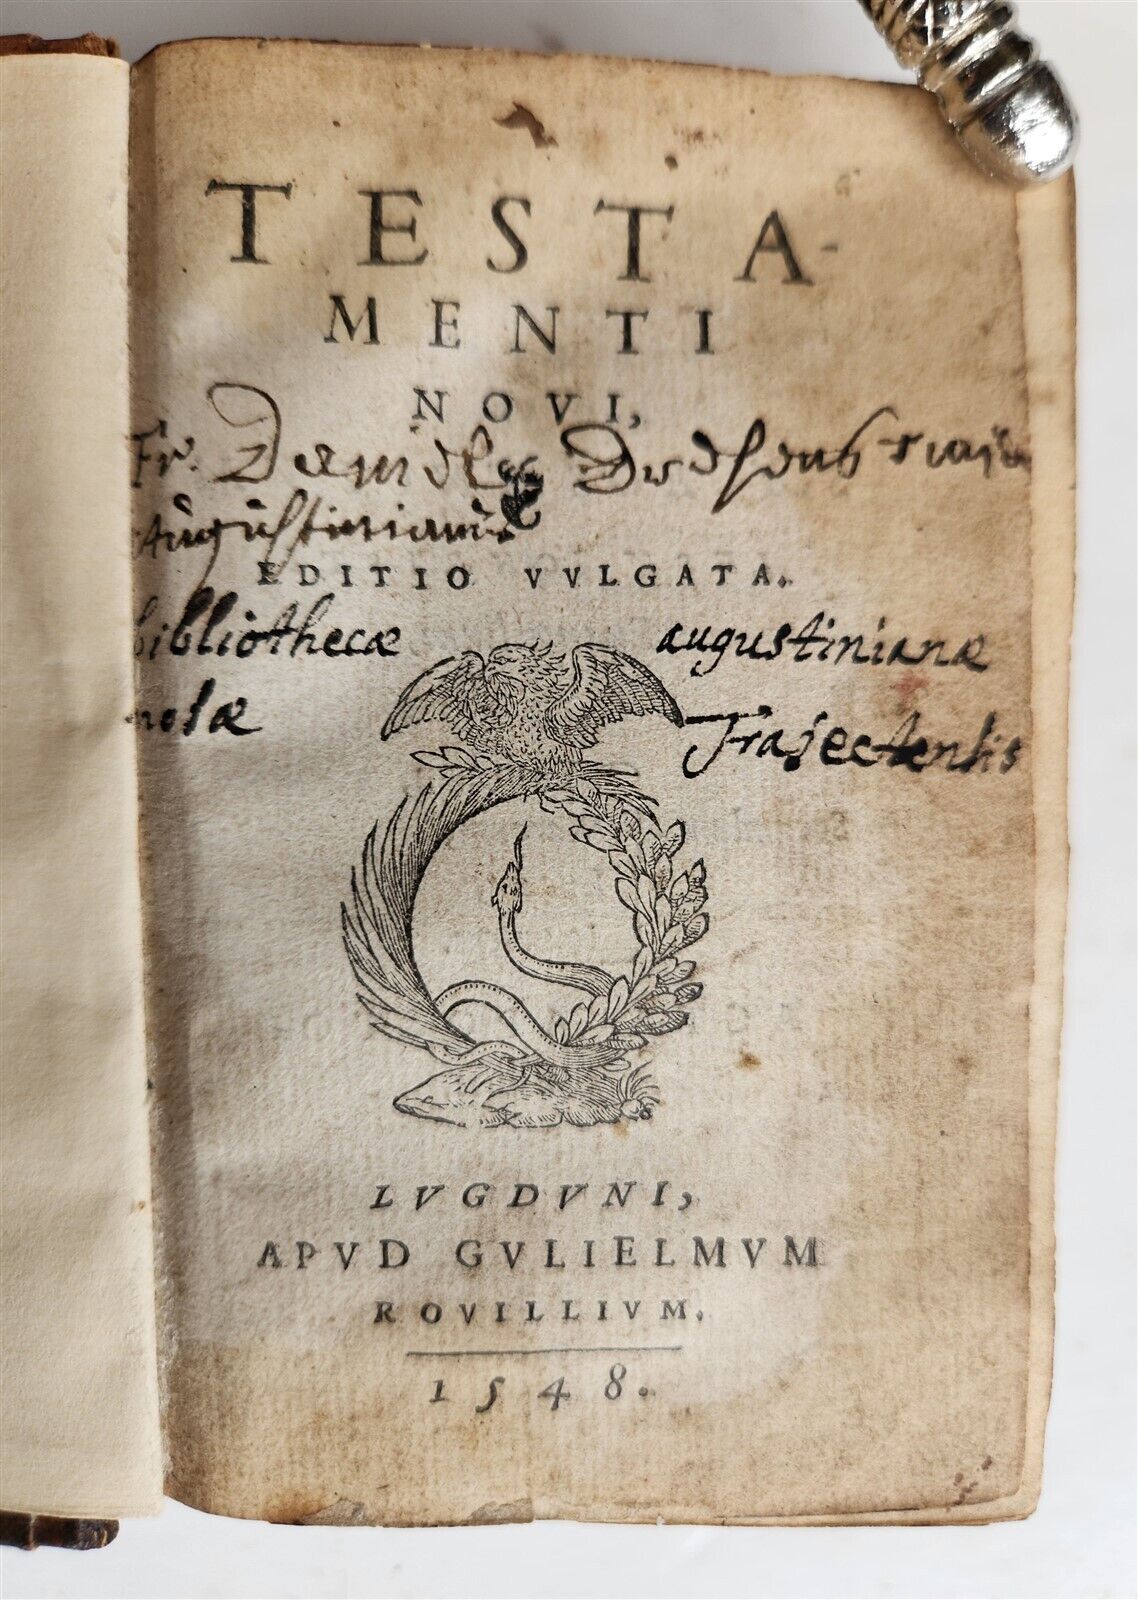 TESTA-
MENTI
NOVI,
Fr. Daniel
Augustinianus
EDITIO VVLGATA.
bibliothecæ augustinianæ
mosæ Trajectensis
LVGDVNI,
APVD GVLIELMVM
ROVILLIVM.
1548.